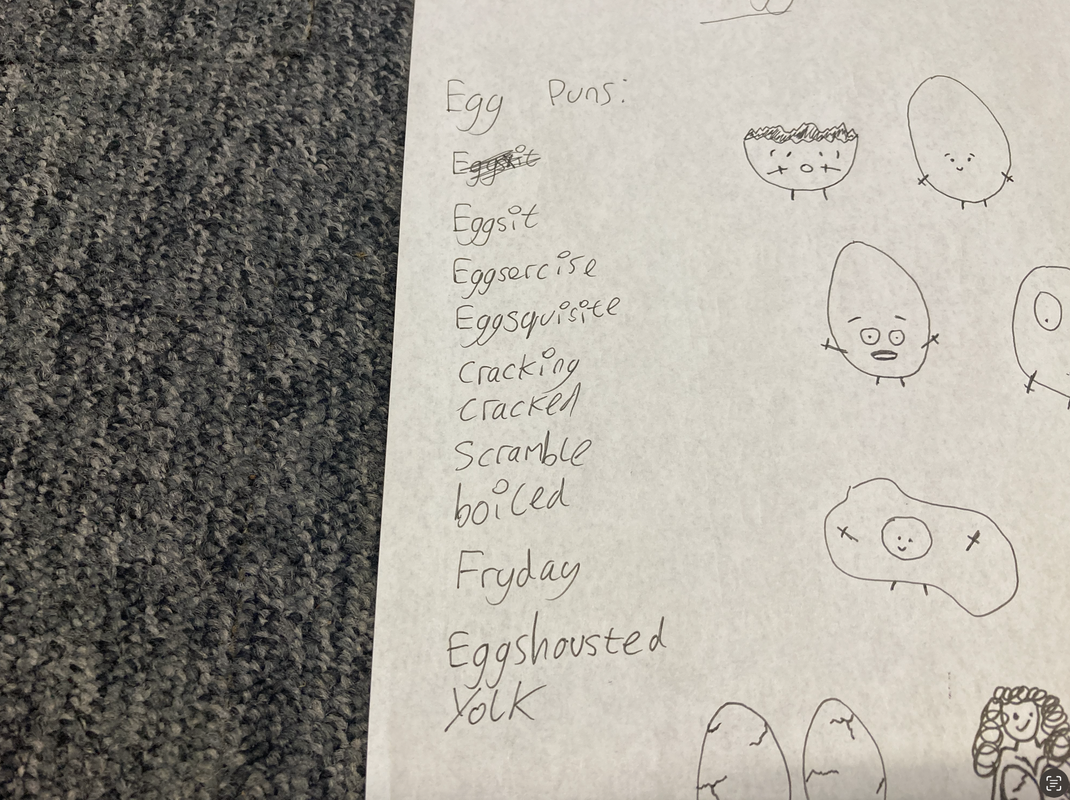 Egg Puns:
Eggsit
Eggsit
Eggsercise
Eggsquisite
Cracking
Cracked
Scramble
boiled
Fryday
Eggshousted
Yolk